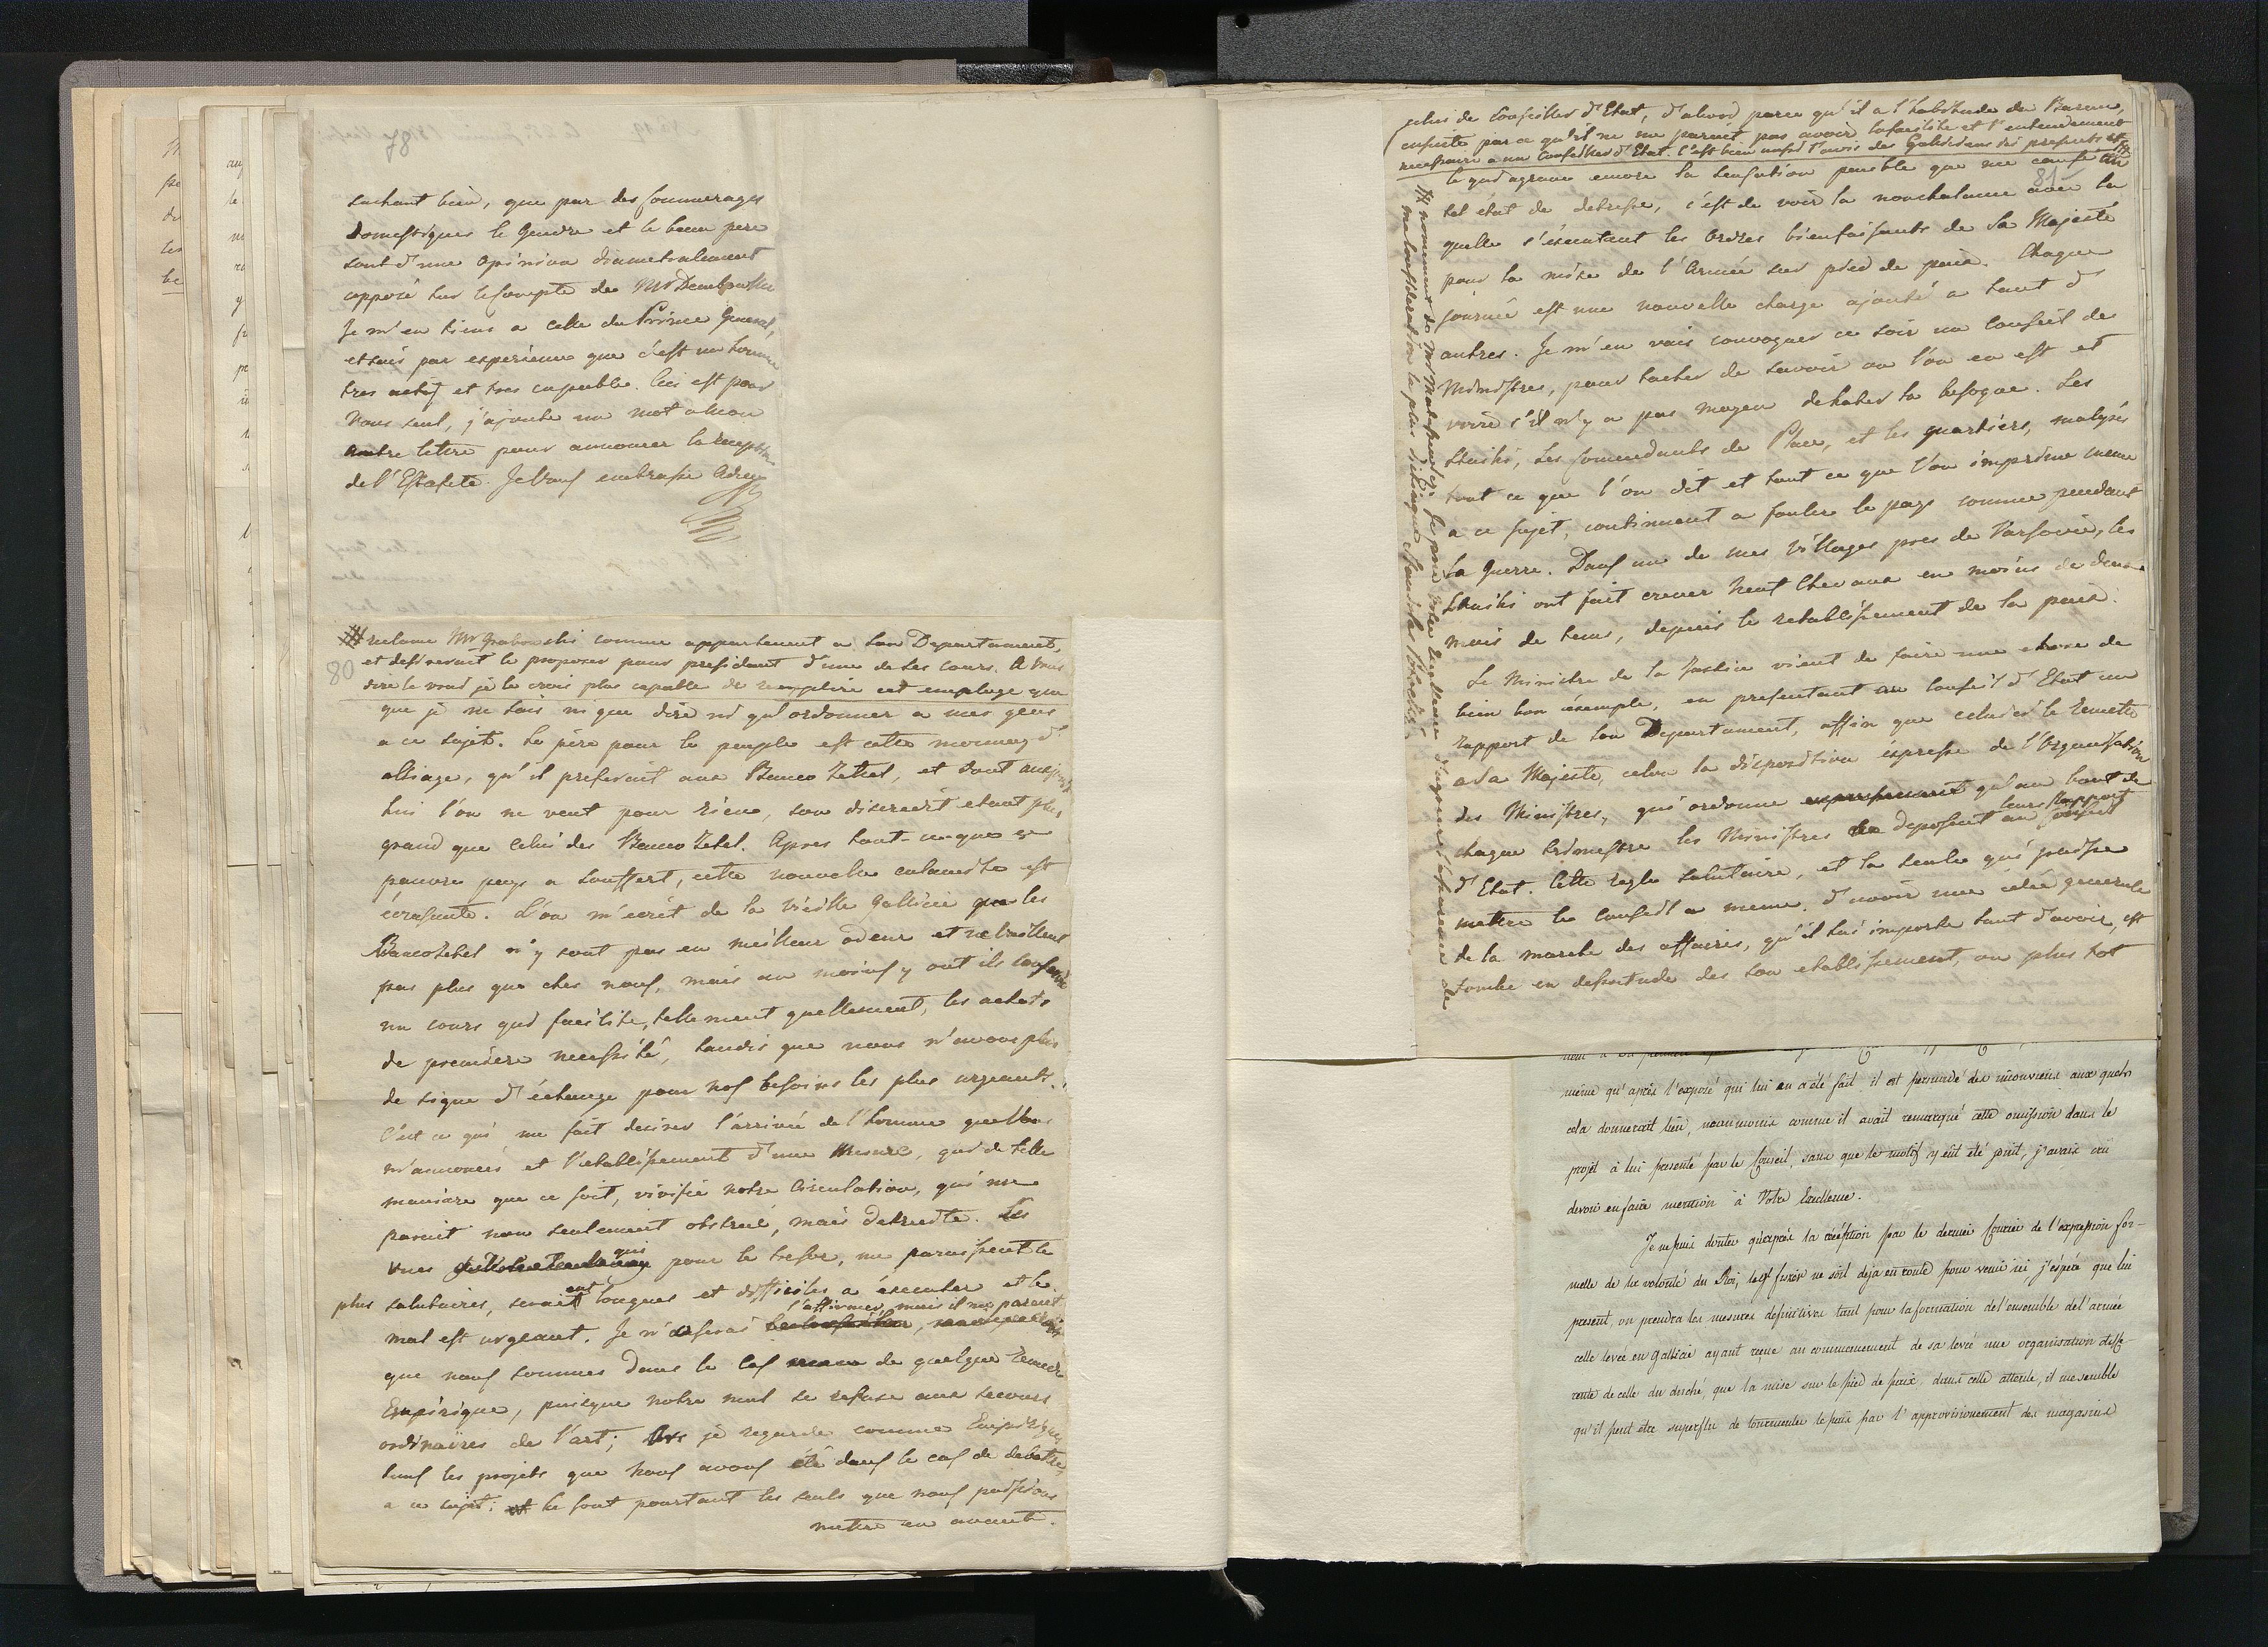 sachant bien, que par des commerages
Domestiques le Gendre et le beau pere
sont d'une Opinion diametralement
opposé sur le compte de Mr Dembowski
Je m'en tiens a celle du Prince General,
et sais par experience que c'est un homme
tres actif et tres capable. Ceci est pour
Vous seul, j'ajoute un mot a mon
autre lettre pour annoncer la reception
de l'Estafete. Je Vous embrasse Adieu
80
# reclame Mr Grabowski comme appartenant a son Departament,
et desireroit le proposer pour president d'une de ses cours. A Vous
dire le vrai je le crois plus capable de remplire cet emploge que
que je ne sais ni que dire ni qu'ordonner a mes gens
a ce sujet. Le pire pour le peuple est cette monnoy d'
alliage, qu'il preferoit aux Banco Zettel, et dont aujourd
hui l'on ne veut pour rien, son discredit etant plus
grand que celui des Banco Zetel. Apres tout ce que ce
pauvre pays a souffert, cette nouvelle calamite est
écrasente. L'on m'ecrit de la Vieille Gallicie que les
Banco Zetel n'y sont pas en meilleur odeur et ne vaillent
pas plus que ches nous, mais au moins y ont ils conservé
un cours qui facilite, tellement quellement, les achats
de premiere necessité, tandis que nous n'avons plus
de signe d'échange pour nos besoins les plus urgeants.
C'est ce qui me fait desirer l'arrivée de l'homme que Vous
m'annoncés et l'etablissement d'une Mesure, qui de telle
maniere que ce soit, vivifie notre Circulation, qui me
paroit non seulement obstrué, mais detruite. Les
vues qui pour le tresor, me paroissent le
plus salutaires, seroient longues et difficiles a éxecuter et le
mal est urgeant. Je n'oserai l'affirmer, mais il me paroit
que nous sommes dans le Cas de quelque remede
Empirique, puisque notre mal se refuse aux secours
ordinaires de l'art; je regarde comme Empirique
tous les projets que nous avons été dans le cas de debattre,
a ce sujet; ce sont pourtant les seuls que nous puissions
mettre en avant.
celui de Conseiller d'Etat, d'abord parce qu'il a l'habitude du Bareau,
ensuite parce qu'il ne me paroit pas avoir la facilité et l'entendement
necessaire a un Conseiller d'Etat. C'est bien aussi l'avis des Galliciens ici presents et
81
Ce qui agrave encore la sensation penible que me cause un
tel etat de detresse, c'est de voir la nonchalance avec la
quelle s'éxecutent les Ordres bienfaisants de Sa Majesté
pour la mise de l'Armée sur pied de paix. Chaque
journée est une nouvelle charge ajouté a tant d'
autres. Je m'en vais convoquer ce soir un Conseil de
Ministres, pour tacher de savoir ou l'on en est et
voir s'il n'y a pas moyen de hater la besogne. Les
Stuiki, les Comendants de Place, et les quartiers, malgré
tout ce que l'on dit et tout ce que l'on imprime meme
a ce sujet, continuent a fouler le pays comme pendant
la Guerre. Dans un de mes Villages pres de Varsovie, les
Stuiki ont fait crever neuf Chevaux en moins de deux
mois de tems, depuis le retablissement de la paix.
Le Ministre de la Justice vient de faire une chose de
bien bon éxemple, en presentant au Conseil d'Etat un
rapport de son Departament, affin que celui ci le remette
a Sa Majesté, selon la disposition éxpresse de l'Organisation
des Ministres, qui ordonne qu'au bout de
chaque trimestre les Ministres deposent au Conseil leurs Rapport
d'Etat. Cette regle salutaire, et la seule qui puisse
mettre le Conseil a meme, d'avoir une idée generale
de la marche des affaires, qu'il lui importe tant d'avoir, est
tombé en desuetude des son etablissement, ou plus tot
# nomement de Mr Matuszewicz. Je prie Votre Excellence d'agreer l'assurance de
ma Consideration la plus distinguée Stanislas Potocki
même qu'après l'exposé qui lui en a été fait il est persuadé des inconveniens aux quels
cela donnerait lieu, néanmoins comme il avait remarqué cette omission dans le
projet à lui presenté par le Conseil, sans que le motif y eût été joint, j'avais crû
devoir en faire mention à Votre Excellence.
Je ne puis douter qu'après la réception par le dernier Courier de l'expression for-
melle de la volonté du Roi, le Gl. Fiszer ne soit déja en route pour venir ici, j'espère que lui
present, on prendra les mesures définitives tant pour la formation de l'ensemble de l'armée
celle levée en Gallicie ayant reçue au commencement de sa levée une organisation diffé-
rente de celle du duché, que la mise sur le pied de paix, dans cette attente, il me semble
qu'il peut être superflu de tourmenter le païs par l'approvisionement des magasins